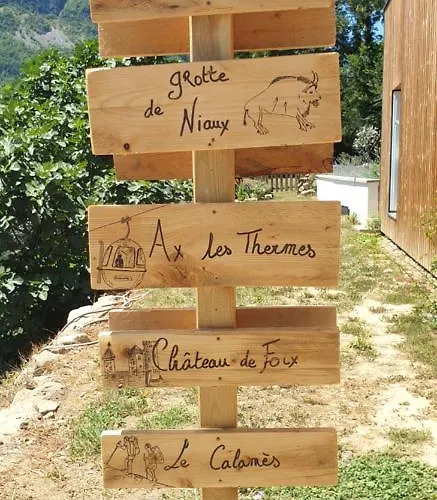 grotte
de
Niaux
Ax les Thermes
Château de Foix
Le Calamès